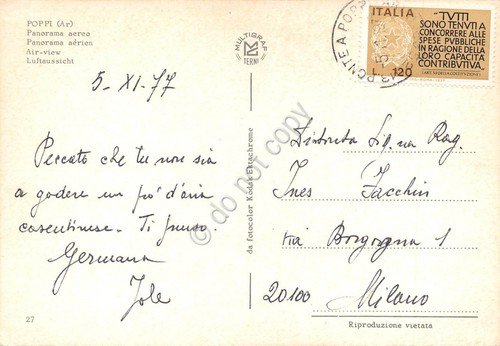 POPPI (Ar)
Panorama aereo
Panorama aérien
Air-view
Luftaussicht
MULTIGRAF
TERNI
ITALIA
"TUTTI
SONO TENUTI A
CONCORRERE ALLE
SPESE PUBBLICHE
IN RAGIONE DELLA
LORO CAPACITÀ
CONTRIBUTIVA"
L. 120
PONTE A POPPI
5-XI-77
Peccato che tu non sia
a godere un pó d'aria
casentinese. Ti penso.
Germana
Jole
Distinta Sig.na Rag.
Ines Facchin
via Borgogna 1
20100 Milano
da fotocolor Kodak Ektachrome
© do not copy
27
Riproduzione vietata